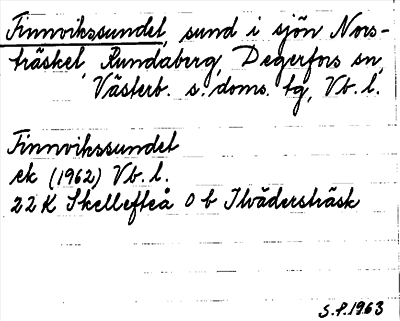 Finnvikssundet, sund i sjön Nors-
träsket, Rundaberg, Degerfors sn,
Västerb. s. doms. tg, Vb. l.
Finnvikssundet
ek (1962) Vb. l.
22K Skellefteå 0 b Ilvädersträsk
S.P. 1963